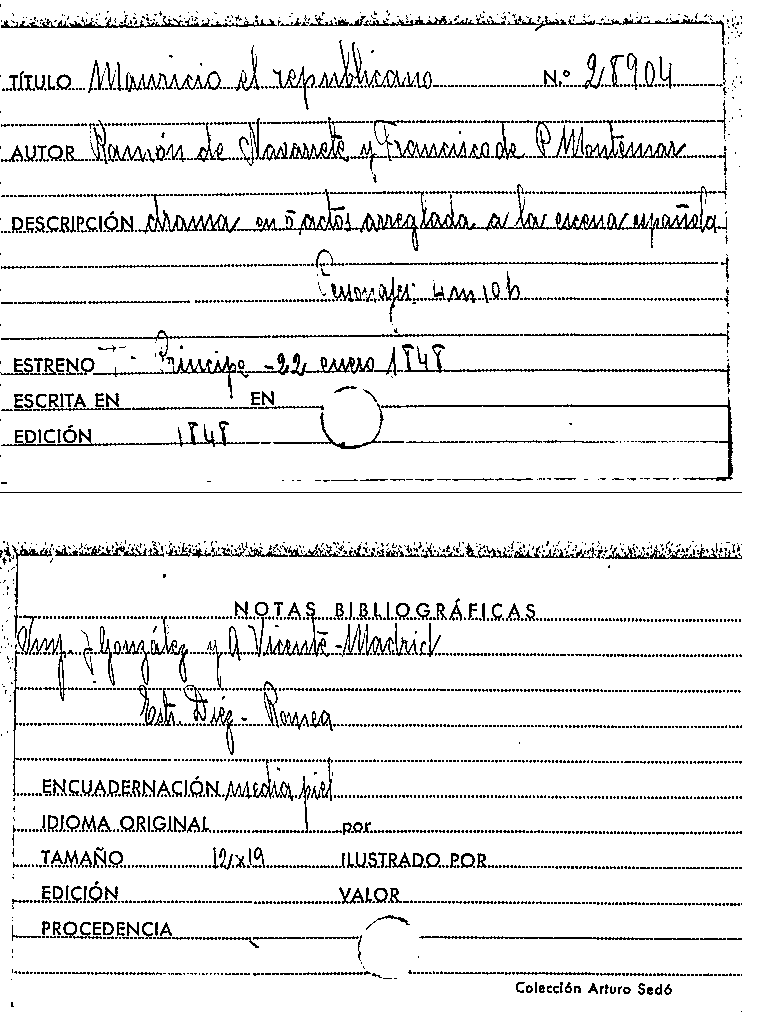 TÍTULO Mauricio el republicano N.º 28904
AUTOR Ramón de Navarrete y Francisco de P Montemar
DESCRIPCIÓN drama en 5 actos arreglada a la escena española
Personajes: 4 m 10 h
ESTRENO T. Principe - 22 enero 1848
ESCRITA EN EN
EDICIÓN 1848
NOTAS BIBLIOGRÁFICAS
Imp. J González y A Vicente - Madrid
Estr. Díez - Romea
ENCUADERNACIÓN media piel
IDIOMA ORIGINAL por
TAMAÑO 12 x 19 ILUSTRADO POR
EDICIÓN VALOR
PROCEDENCIA
Colección Arturo Sedó